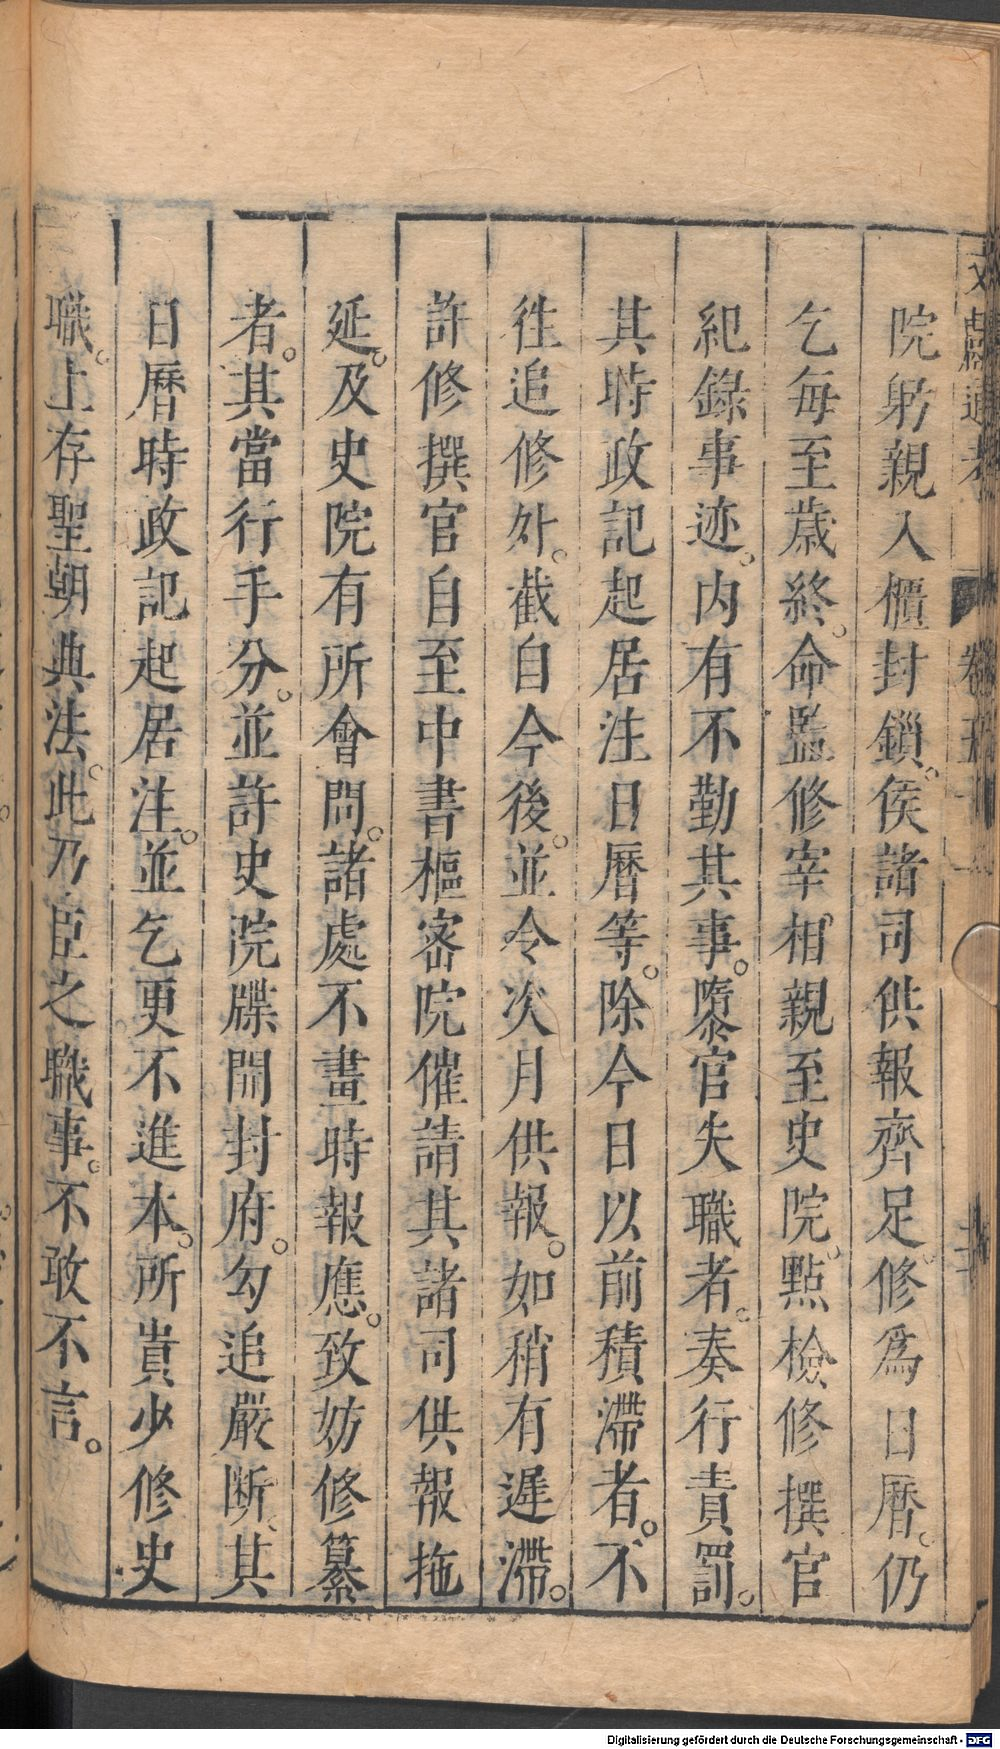 院躬親入櫃封鎖。俟諸司供報齊足。修爲日曆。仍
乞每至歲終。命監修宰相。親至史院。點檢修撰官
紀錄事迹。內有不勤其事。隳官失職者。奏行責罰。
其時政記起居注日曆等。除今日以前積滯者。不
徃追修外。截自今後。並令次月供報。如稍有遲滯。
許修撰官自至中書樞密院催請其諸司供報拖
延。及史院有所會問。諸處不畫時報應。致妨修纂
者。其當行手分。並許史院牒開封府。勾追嚴断。其
日曆時政記起居注。並乞更不進本。所貴少修史
職。上存聖朝典法。此乃臣之職事。不敢不言。
文獻通考
卷五十一
Digitalisierung gefördert durch die Deutsche Forschungsgemeinschaft - DFG